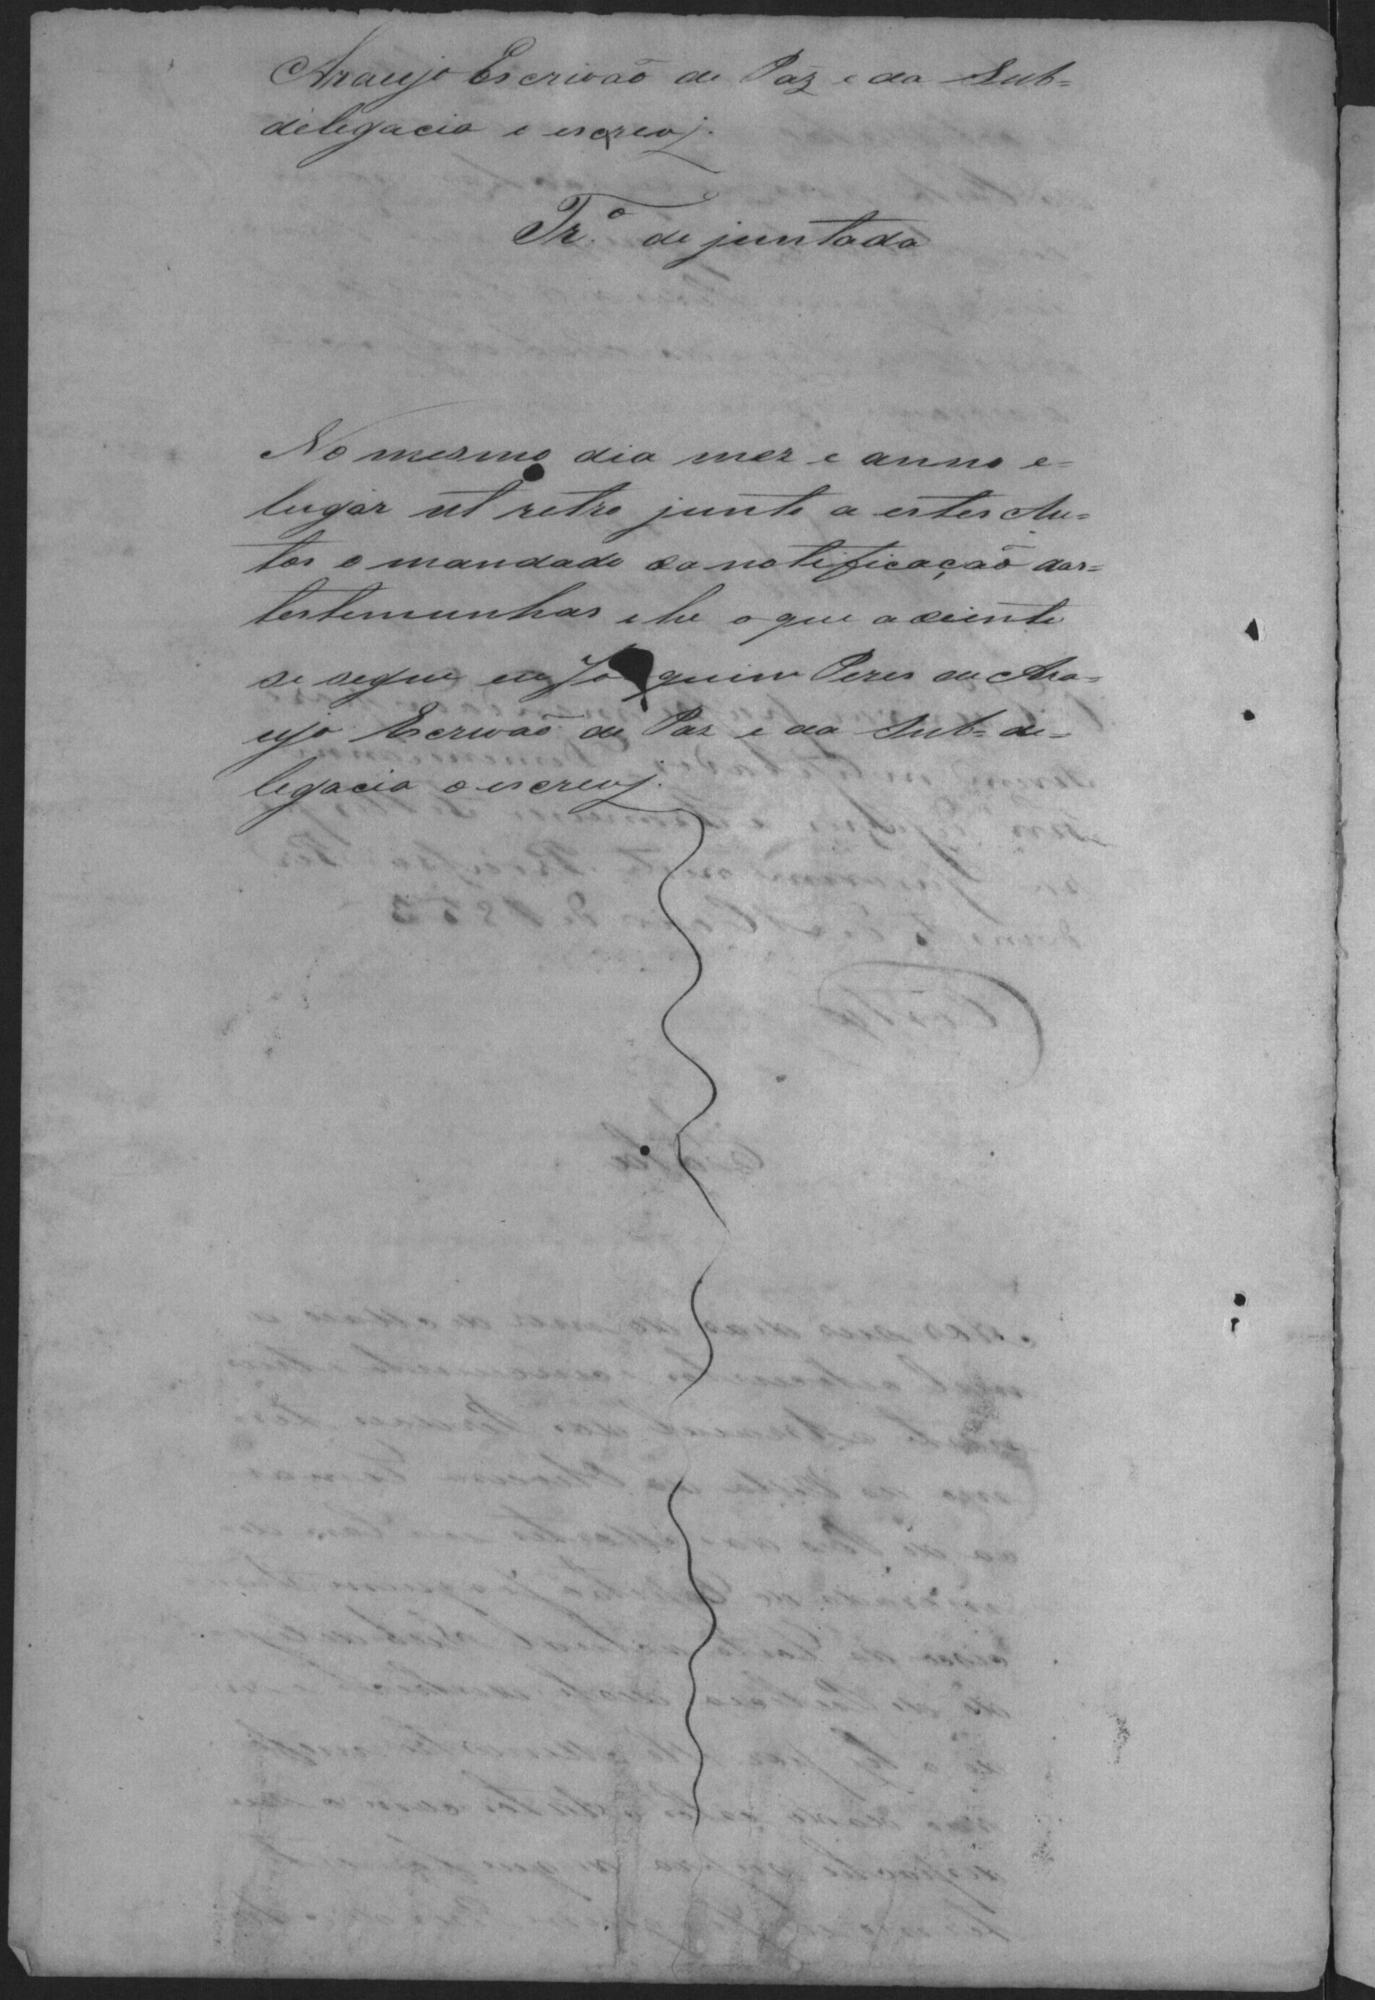 Araujo Escrivaõ de Paz e da Sub=
delegacia o escrevj.
Trº. de juntada
No mesmo dia mez e anno e=
lugar ut retro junto a estes Au=
tos o mandado da notificação das=
testemunhas e he o que adiente
se segue eu Joaquim Peres de Ara=
ujo Escrivaõ de Paz e da Sub=de=
legacia o escrevj.